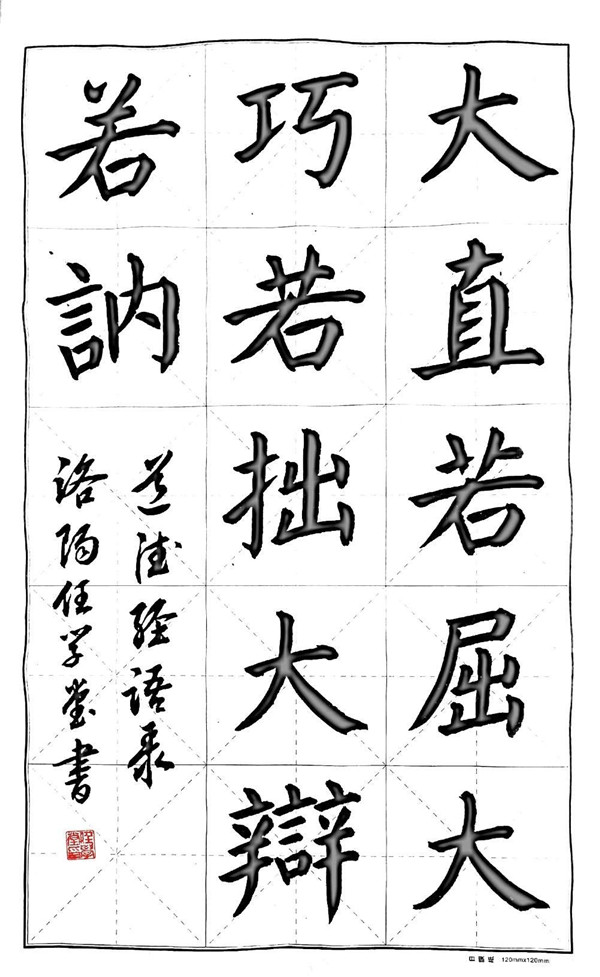 大直若屈大
巧若拙大辯
若訥
道德經语录
洛阳任学堂書
120mmx120mm